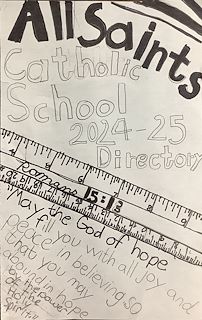 All Saints
Catholic
School
2024-25
Directory
Romans 15:13
May the God of hope
fill you with all joy and
peace in believing so
that you may
abound in hope
by the power
of the